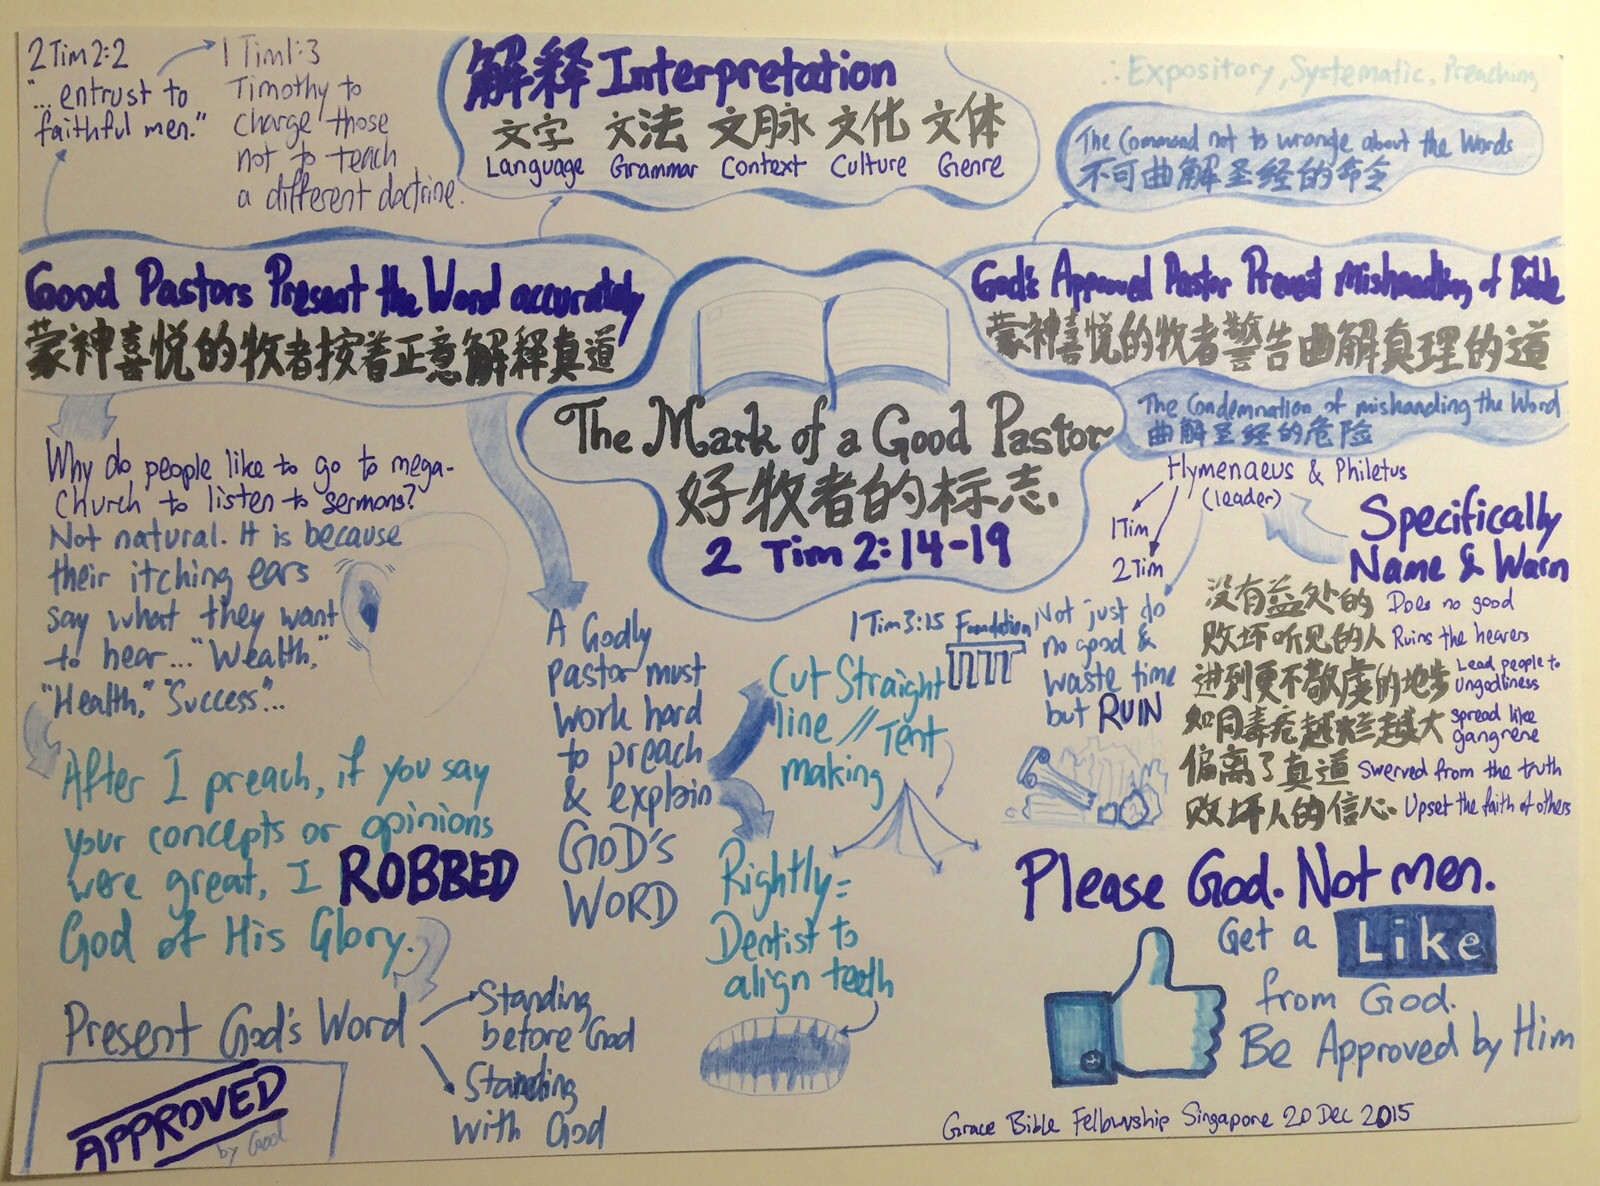 2 Tim 2:2
"... entrust to
faithful men."
1 Tim 1:3
Timothy to
charge those
not to teach
a different doctrine.
解释 Interpretation
文字 文法 文脉 文化 文体
Language Grammar Context Culture Genre
∴ Expository, Systematic, Preaching
The Command not to wrangle about the Words
不可曲解圣经的命令
Good Pastors Present the Word accurately
蒙神喜悦的牧者按着正意解释真道
God's Approved Pastor Prevent Mishandling of Bible
蒙神喜悦的牧者警告曲解真理的道
The Mark of a Good Pastor
好牧者的标志.
2 Tim 2:14-19
The Condemnation of mishandling the Word
曲解圣经的危险
Hymenaeus & Philetus
(leader)
1 Tim
2 Tim
Specifically
Name & Warn
Why do people like to go to mega-
church to listen to sermons?
Not natural. It is because
their itching ears
say what they want
to hear... "Wealth,"
"Health," "Success"...
After I preach, if you say
your concepts or opinions
were great, I ROBBED
God of His Glory.
Present God's Word
Standing
before God
Standing
with God
APPROVED
by God
A Godly
pastor must
work hard
to preach
& explain
GOD'S
WORD
1 Tim 3:15 Foundation
Cut Straight
line // Tent
making
Rightly =
Dentist to
align teeth
Not just do
no good &
waste time
but RUIN
没有益处的 Does no good
败坏听见的人 Ruins the hearers
进到更不敬虔的地步 Lead people to
ungodliness
如同毒疮越烂越大 Spread like
gangrene
偏离了真道 Swerved from the truth
败坏人的信心. Upset the faith of others
Please God. Not men.
Get a Like
from God.
Be Approved by Him
Grace Bible Fellowship Singapore 20 Dec 2015